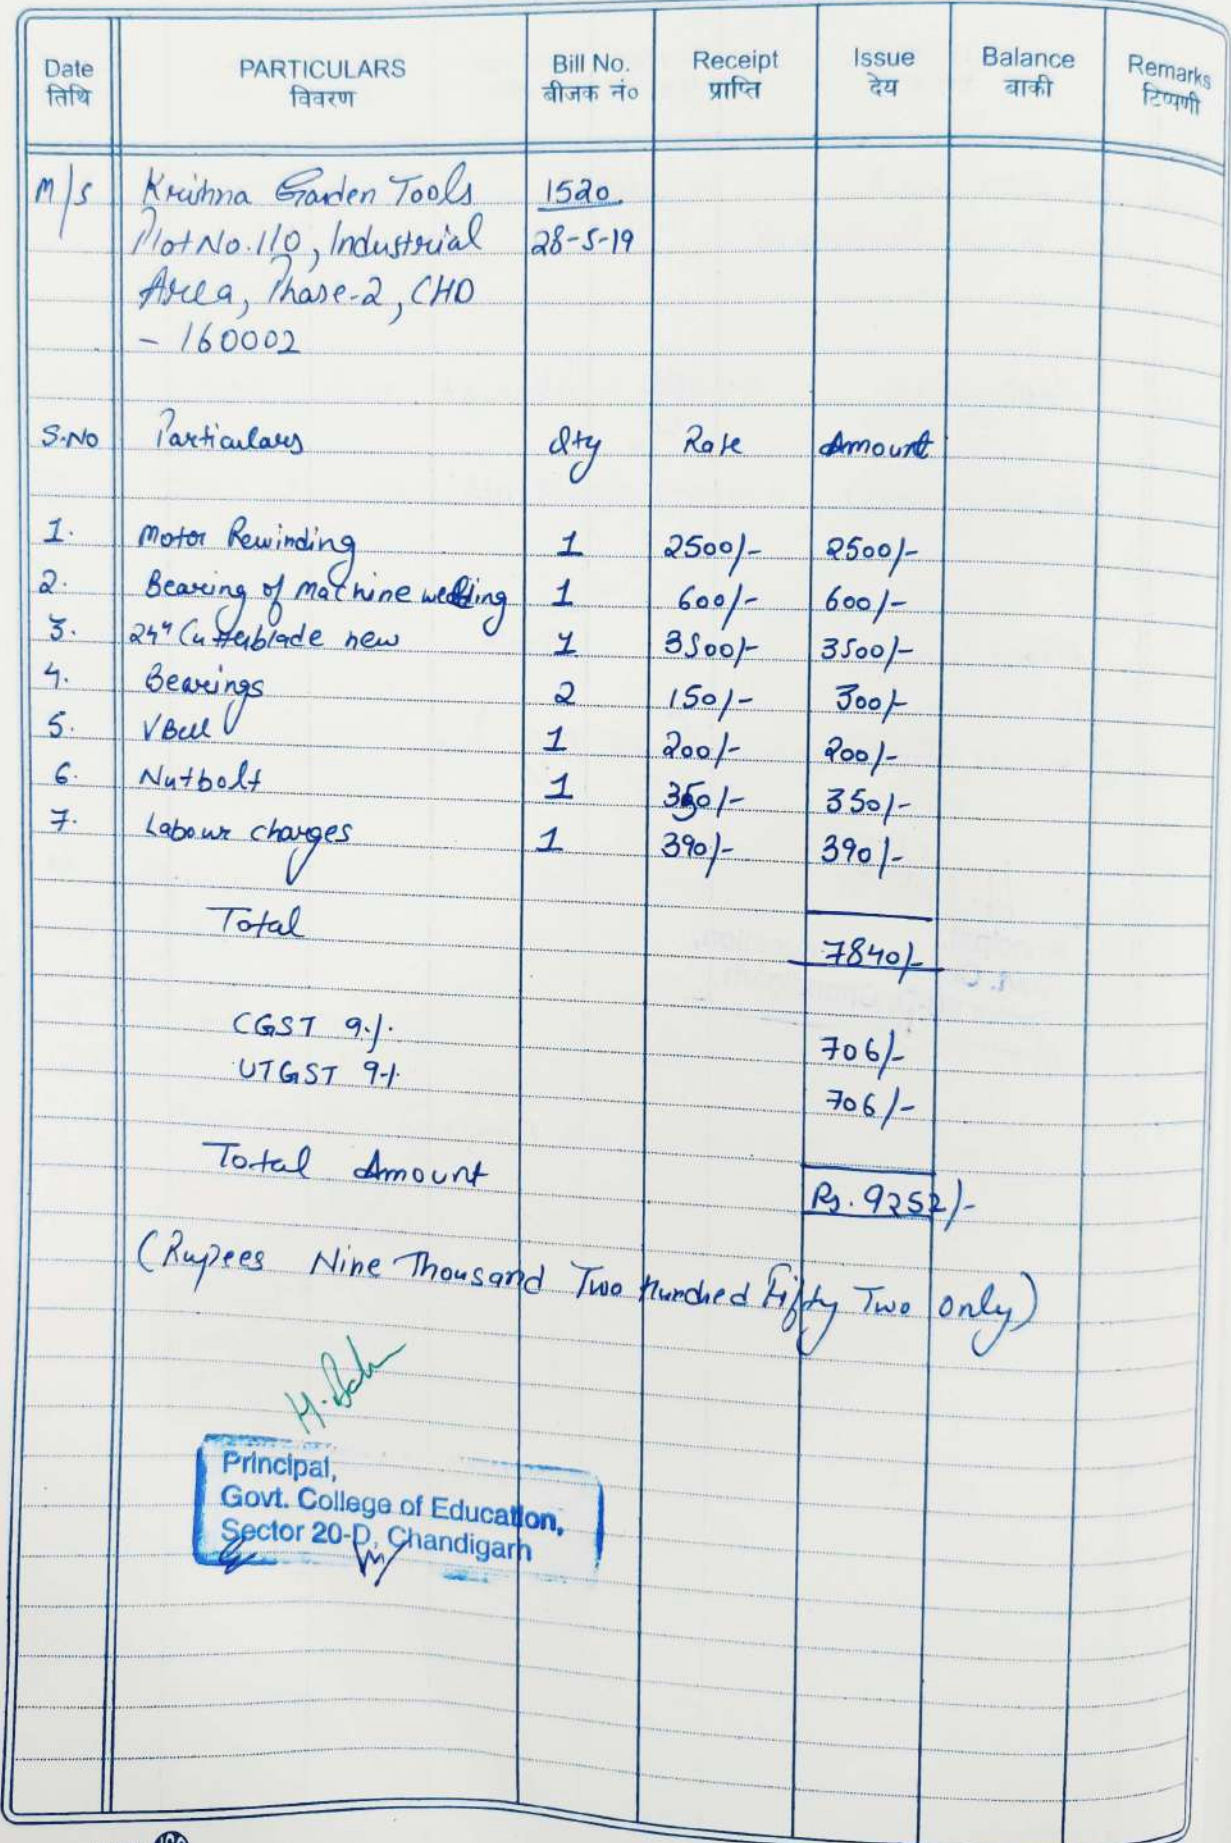 Date PARTICULARS Bill No. Receipt Issue Balance Remarks
तिथि विवरण बीजक नं० प्राप्ति देय बाकी टिप्पणी
M/S Krishna Garden Tools 1520
Plot No. 110, Industrial 28-5-19
Area, Phase-2, CHD
- 160002
S.No Particulars Qty Rate Amount
1. Motor Rewinding 1 2500/- 2500/-
2. Bearing of machine welding 1 600/- 600/-
3. 24" Cutterblade new 1 3500/- 3500/-
4. Bearings 2 150/- 300/-
5. V Belt 1 200/- 200/-
6. Nutbolt 1 350/- 350/-
7. Labour charges 1 390/- 390/-
Total 7840/-
CGST 9% 706/-
UTGST 9% 706/-
Total Amount Rs. 9252/-
(Rupees Nine Thousand Two Hundred Fifty Two only)
Principal,
Govt. College of Education,
Sector 20-D, Chandigarh